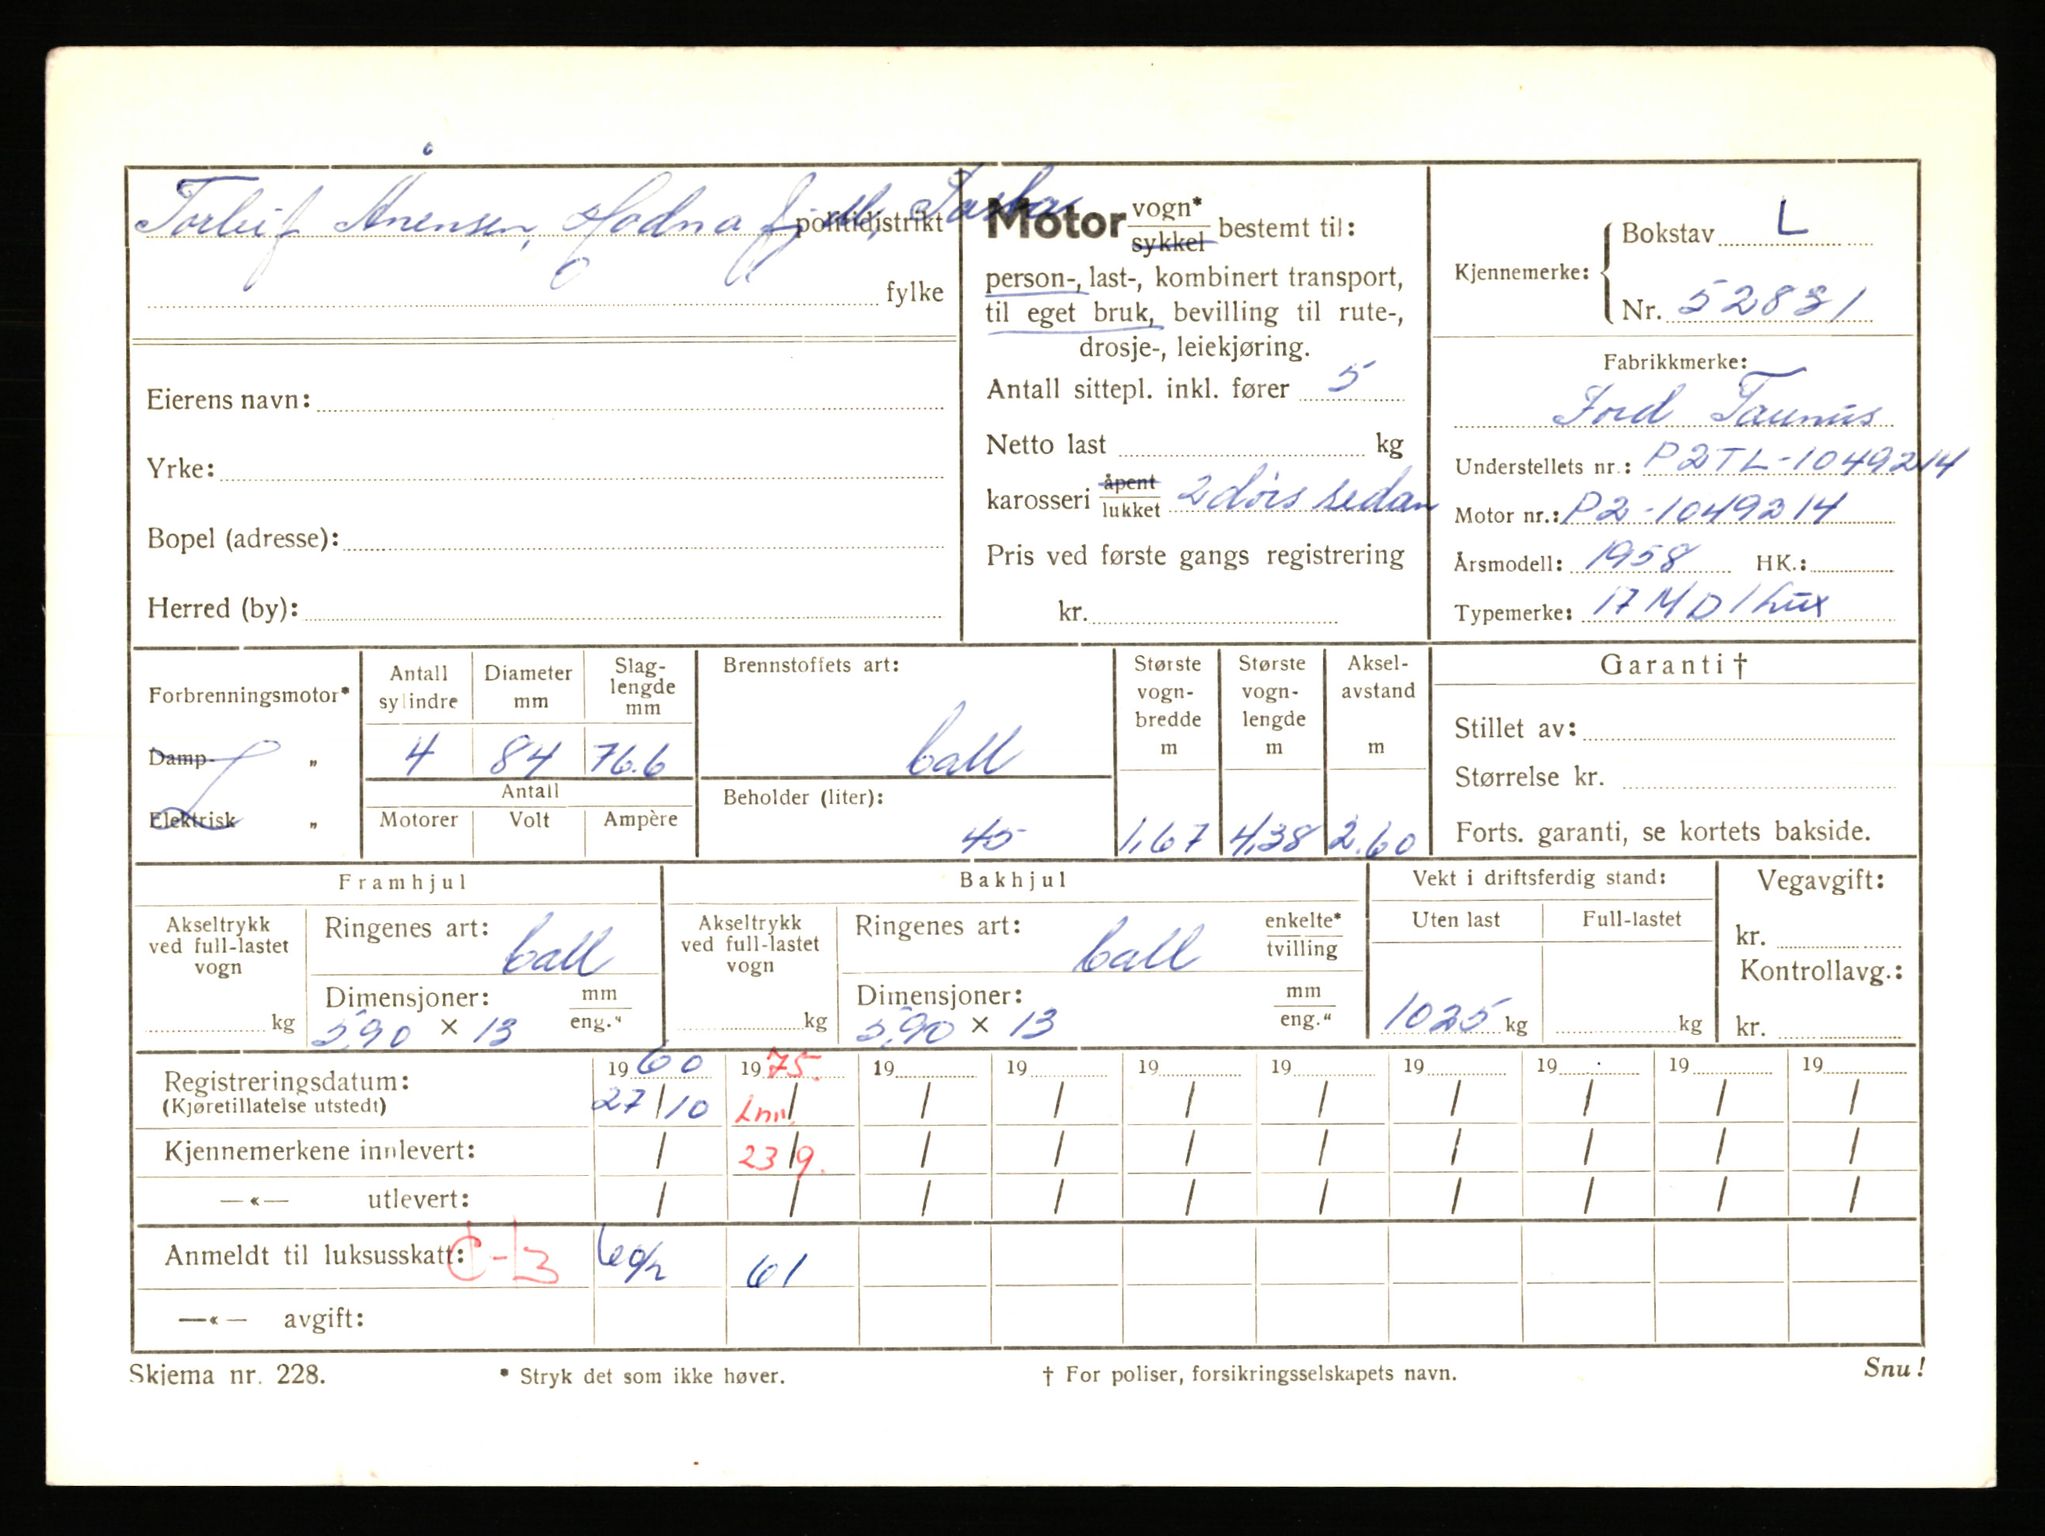 Torleif Ånensen,
politidistrikt
fylke
Eierens navn:
Yrke:
Bopel (adresse):
Herred (by):
Motor vogn* sykkel bestemt til:
person-, last-, kombinert transport,
til eget bruk, bevilling til rute-,
drosje-, leiekjøring.
Antall sittepl. inkl. fører 5
Netto last kg
karosseri åpent lukket 2 dørs sedan
Pris ved første gangs registrering
kr.
Kjennemerke: Bokstav L
Nr. 52831
Fabrikkmerke:
Ford Taunus
Understellets nr.: P2TL-1049214
Motor nr.: P2-1049214
Årsmodell: 1958 HK.:
Typemerke: 17 M D/Lux
Forbrenningsmotor*
Damp- "
Elektrisk "
Antall sylindre Diameter mm Slag-lengde mm
4 84 76.6
Antall
Motorer Volt Ampère
Brennstoffets art:
Beholder (liter):
45
Største vogn-bredde m Største vogn-lengde m Aksel-avstand m
1,67 4,38 2.60
Garanti †
Stillet av:
Størrelse kr.
Forts. garanti, se kortets bakside.
Framhjul
Akseltrykk ved full-lastet vogn
kg
Ringenes art: ball
Dimensjoner: mm eng."
5,90 × 13
Bakhjul
Akseltrykk ved full-lastet vogn
kg
Ringenes art: ball enkelte* tvilling
Dimensjoner: mm eng."
5,90 × 13
Vekt i driftsferdig stand:
Uten last Full-lastet
1025 kg kg
Vegavgift:
kr.
Kontrollavg.:
kr.
1960 1975. 19 19 19 19 19 19 19 19
Registreringsdatum: 27/10 Inn. / / / / / / / / /
(Kjøretillatelse utstedt)
Kjennemerkene innlevert: / 23/9. / / / / / / / /
—«— utlevert: / / / / / / / / / /
Anmeldt til luksusskatt: C-13 61
—«— avgift:
Skjema nr. 228. * Stryk det som ikke høver. † For poliser, forsikringsselskapets navn. Snu!